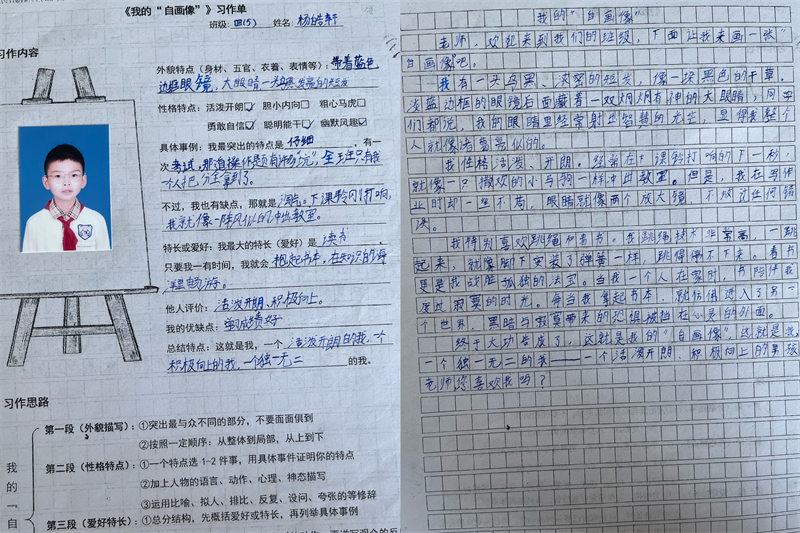 《我的“自画像”》习作单
班级：四(5) 姓名：杨皓轩
习作内容
外貌特点（身材、五官、衣着、表情等）：带着蓝色
边框眼镜，大眼睛一头乌黑发亮的短发
性格特点：活泼开朗☑ 胆小内向☐ 粗心马虎☐
勇敢自信☑ 聪明能干☑ 幽默风趣☑
具体事例：我最突出的特点是 仔细 ，有一
次考试，那道操作题有许多“坑”，全班只有我
一个人把分全拿到了。
不过，我也有缺点，那就是淘气。下课铃刚打响，
我就像一阵风似的冲出教室。
特长或爱好：我最大的特长（爱好）是 读书 ，
只要我一有时间，我就会 抱起书本，在知识的海
洋里畅游。
他人评价：活泼开朗、积极向上。
我的优缺点：成绩好
总结特点：这就是我，一个 活泼开朗的我，一个
积极向上的我，一个独一无二 的我。
习作思路
我
的
“
自
第一段（外貌描写）：①突出最与众不同的部分，不要面面俱到
②按照一定顺序：从整体到局部，从上到下
第二段（性格特点）：①一个特点选 1-2 件事，用具体事例证明你的特点
②加上人物的语言、动作、心理、神态描写
③运用比喻、拟人、排比、反复、设问、夸张的等修辞
第三段（爱好特长）：①总分结构，先概括爱好或特长，再列举具体事例
我的“自画像”
老师，欢迎来到我们的班级，下面让我来画一张“
自画像吧。
我有一头乌黑、浓密的短发，像一块黑色的干草。
浅蓝边框的眼镜后面藏着一双炯炯有神的大眼睛，同学
们都说，我的眼睛里经常射出智慧的光芒，显得我整个
人就像诸葛亮似的。
我性格活泼、开朗。经常在下课铃打响的下一秒，
就像一只撒欢的小马驹一样冲出教室。但是，我在写作
业时却一丝不苟，眼睛就像两个放大镜，不放过任何错
误。
我特别喜欢跳绳和看书。我跳绳技术非常高，一跳
起来，就像脚下安装了弹簧一样，跳得停不下来。看书
是我战胜孤独的法宝。当我一个人在家时，书陪伴我
度过寂寞的时光。每当我拿起书本，就仿佛进入了另一
个世界，黑暗与寂寞带来的恐惧被挡在心灵的外面。
终于大功告成了，这就是我的“自画像”，这就是我，
一个独一无二的我——一个活泼开朗、积极向上的男孩
老师您喜欢我吗？